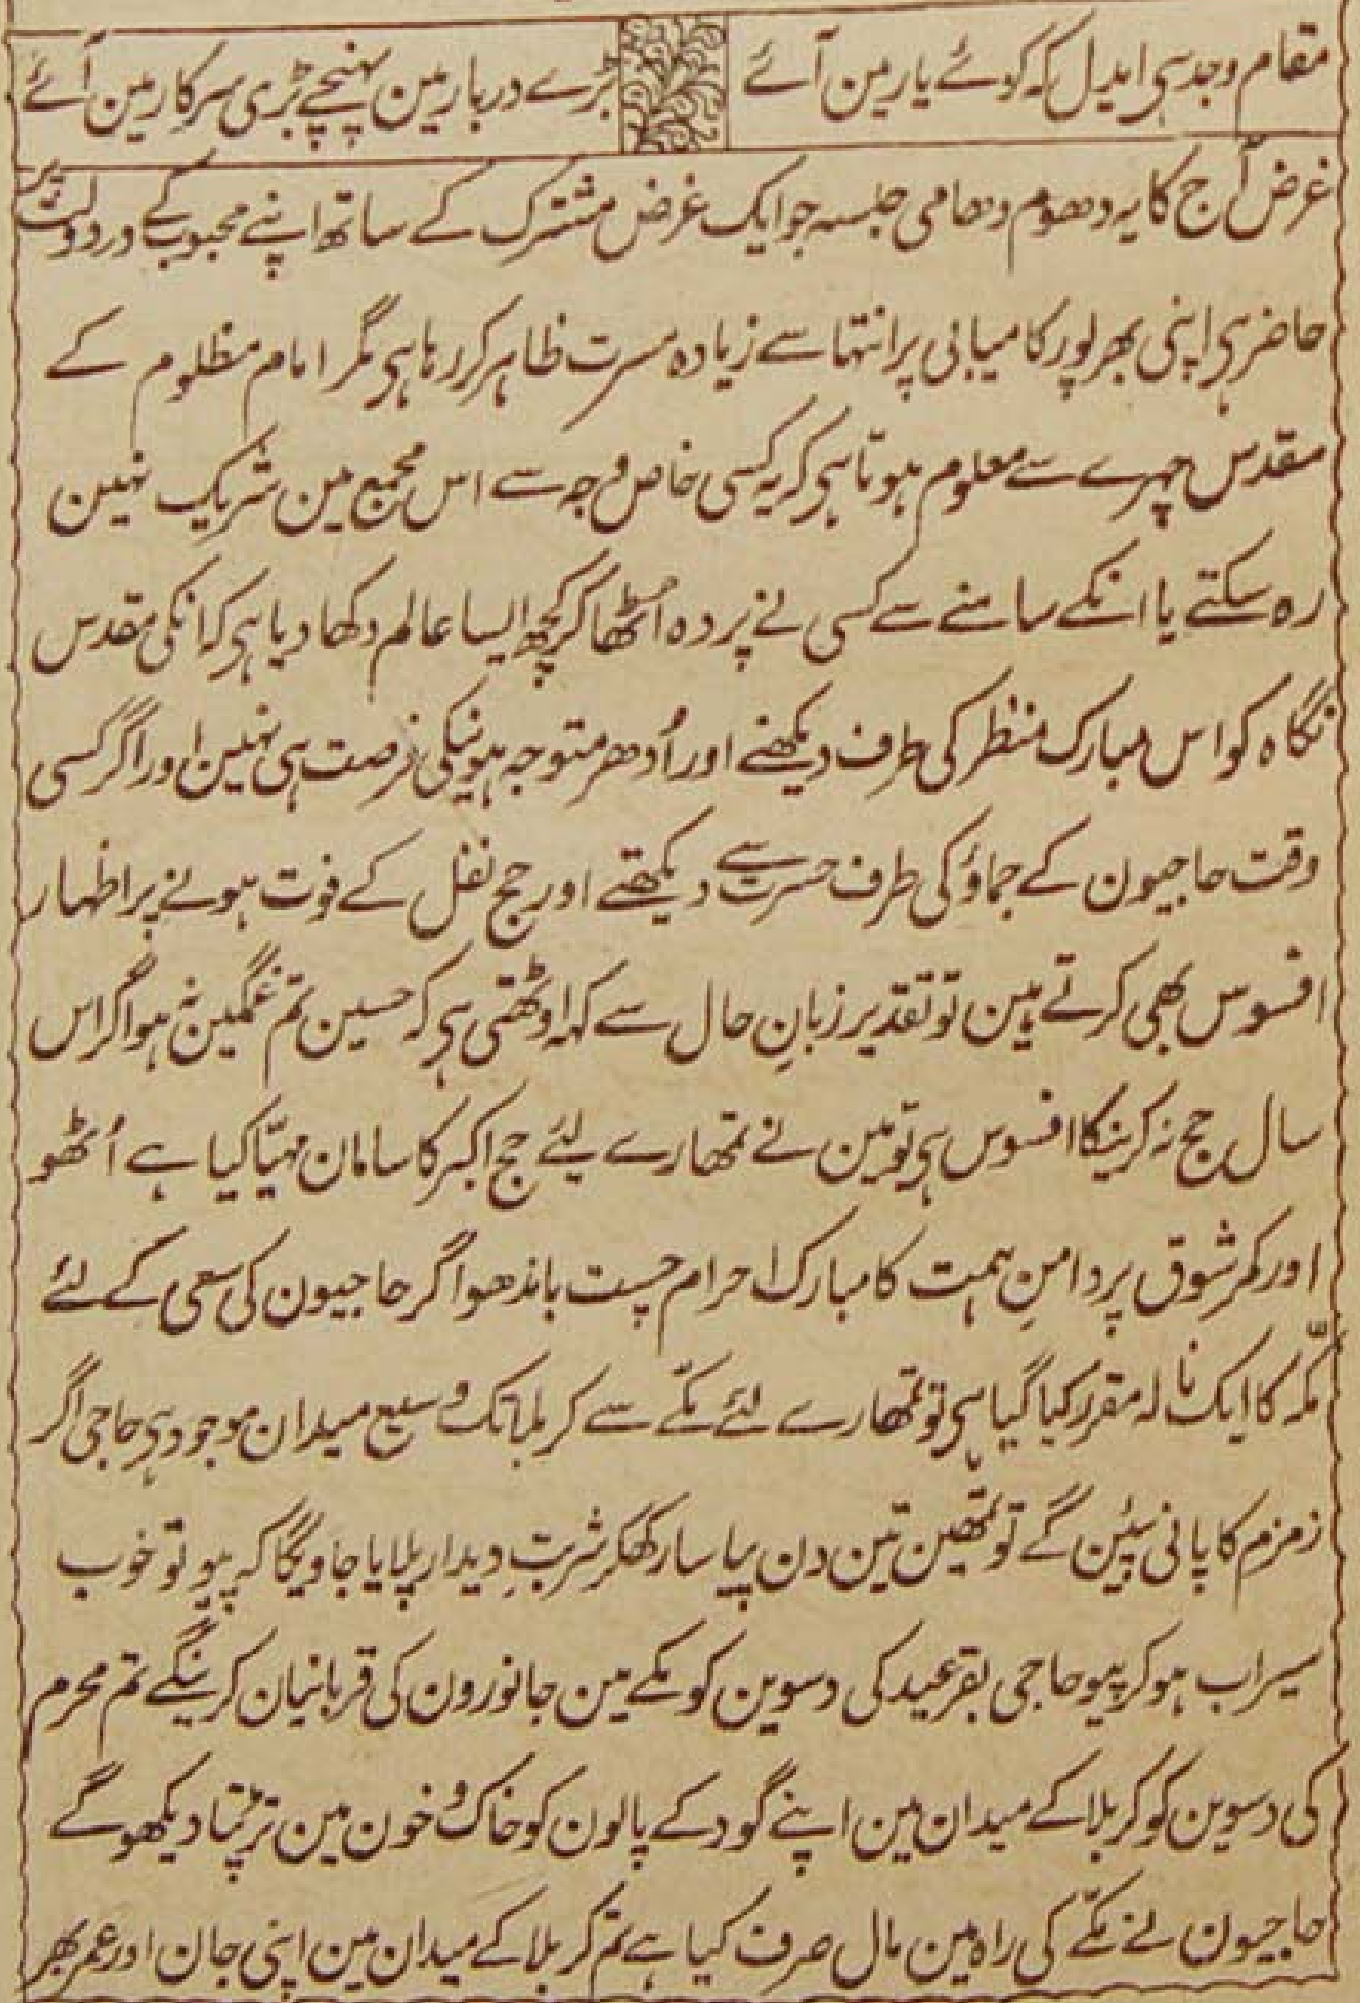 مقام وجد ہی ایدل کہ کوئے یار مین آئے
بڑے دربار مین پہنچے بڑی سرکار مین آئے
غرض آج کا یہ دھوم دھامی جلسہ جو ایک غرض مشترک کے ساتھ اپنے محبوب کے در دولت پر
حاضر ہی اپنی بھرپور کامیابی پر انتہا سے زیادہ مسرت ظاہر کر رہا ہی مگر امام مظلوم کے
مقدس چہرے سے معلوم ہوتا ہی کہ یہ کسی خاص وجہ سے اس مجمع مین شریک نہین
رہ سکتے یا انکے سامنے سے کسی نے پردہ اُٹھا کر کچھ ایسا عالم دکھا دیا ہی کہ انکی مقدس
نگاہ کو اس مبارک منظر کی طرف دیکھنے اور اُدھر متوجہ ہونیکی فرصت ہی نہین اور اگر کسی
وقت حاجیون کے جماؤ کی طرف حسرت سے دیکھتے اور حج نفل کے فوت ہونے پر اظہار
افسوس بھی کرتے ہین تو تقدیر زبانِ حال سے کہہ اوٹھتی ہی کہ حسین تم غمگین نہ ہو اگر اس
سال حج نہ کرنیکا افسوس ہی تو مین نے تمھارے لیئے حج اکبر کا سامان مہیّا کیا ہے اُٹھو
اور کمر شوق پر دامنِ ہمت کا مبارک احرام چست باندھو اگر حاجیون کی سعی کے لئے
مکّہ کا ایک نالہ مقرر کیا گیا ہی تو تمھارے لئے مکّے سے کربلا تک وسیع میدان موجود ہی حاجی اگر
زمزم کا پانی پئین گے تو تمھین تین دن پیاسا رکھکر شربتِ دیدار پلایا جاویگا کہ پیو تو خوب
سیراب ہو کر پیو حاجی بقرعید کی دسوین کو مکے مین جانورون کی قربانیان کرینگے تم محرم
کی دسوین کو کربلا کے میدان مین اپنے گود کے پالون کو خاک و خون مین تڑپتا دیکھو گے
حاجیون نے مکّے کی راہ مین مال صرف کیا ہے تم کربلا کے میدان مین اپنی جان اور عمر بھر